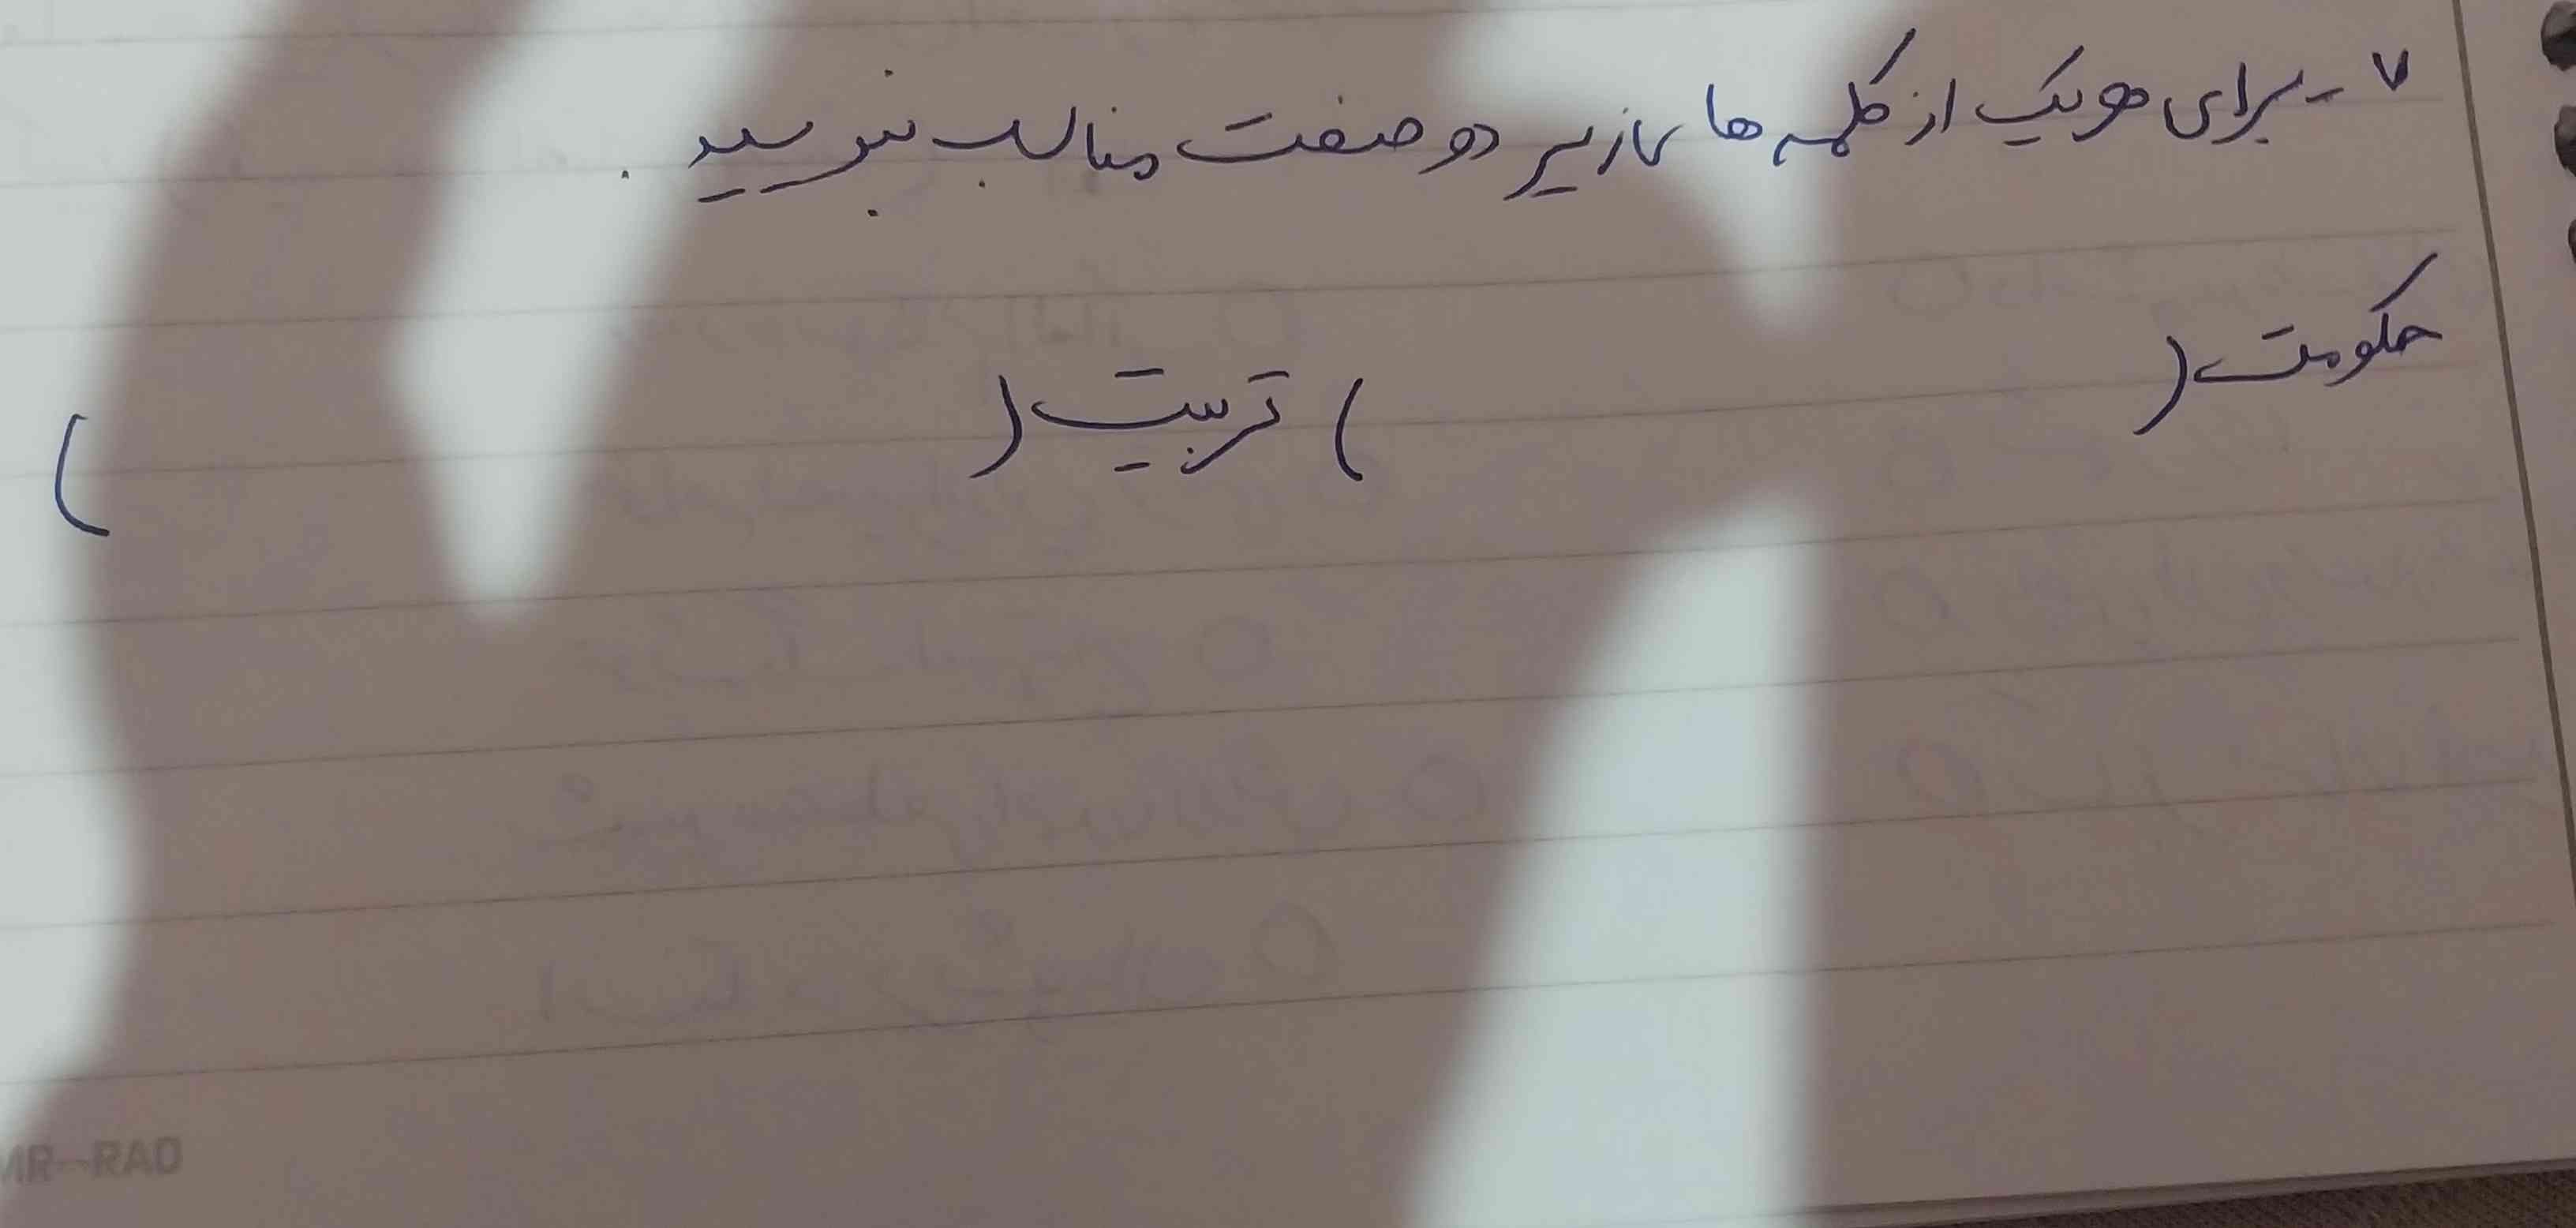 ۷- برای هریک از کلمه های زیر دو صفت مناسب بنویسید.
حکومت (                    ) تربیت (                    )
MR-RAD